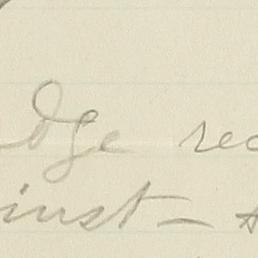 dge rec
inst —